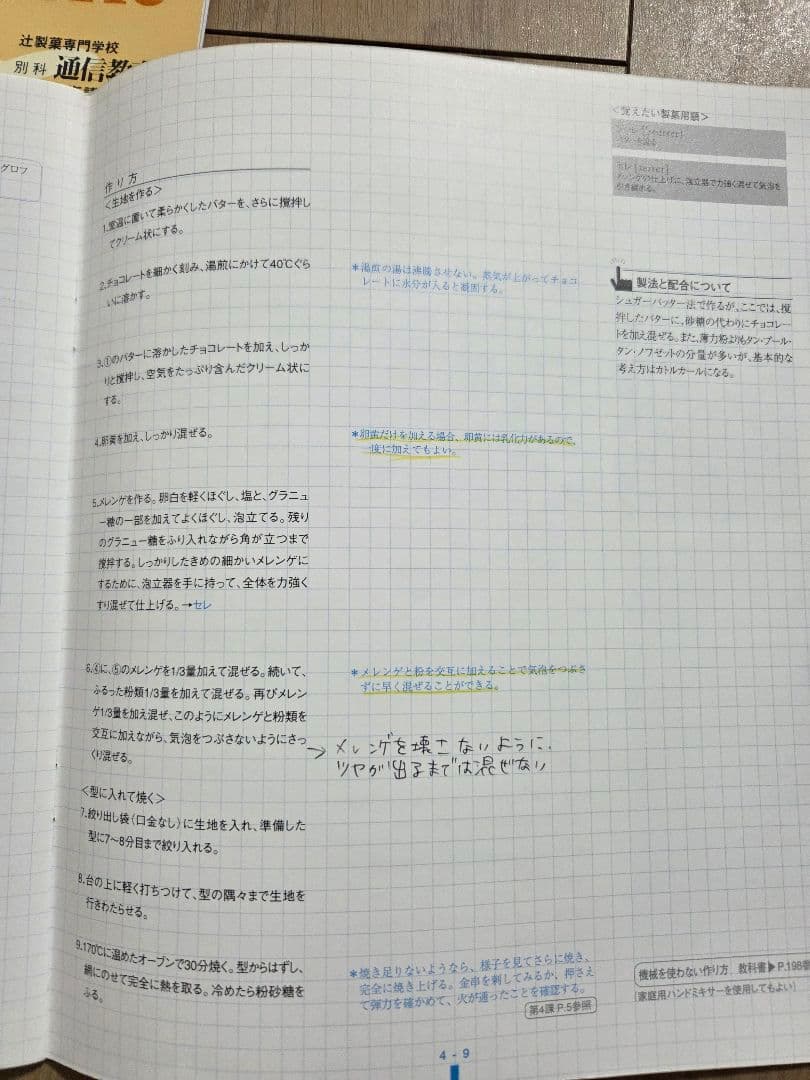 辻製菓専門学校
別科 通信教
グロフ
作り方
<生地を作る>
1.室温に置いて柔らかくしたバターを、さらに撹拌し
てクリーム状にする。
2.チョコレートを細かく刻み、湯煎にかけて40℃ぐら
いに溶かす。
3.①のバターに溶かしたチョコレートを加え、しっか
りと撹拌し、空気をたっぷり含んだクリーム状に
する。
4.卵黄を加え、しっかり混ぜる。
5.メレンゲを作る。卵白を軽くほぐし、塩と、グラニュ
ー糖の一部を加えてよくほぐし、泡立てる。残り
のグラニュー糖をふり入れながら角が立つまで
撹拌する。しっかりしたきめの細かいメレンゲに
するために、泡立器を手に持って、全体を力強く
すり混ぜて仕上げる。→セレ
6.④に、⑤のメレンゲを1/3量加えて混ぜる。続いて、
ふるった粉類1/3量を加えて混ぜる。再びメレン
ゲ1/3量を加え混ぜ、このようにメレンゲと粉類を
交互に加えながら、気泡をつぶさないようにさっ
くり混ぜる。
<型に入れて焼く>
7.絞り出し袋(口金なし)に生地を入れ、準備した
型に7〜8分目まで絞り入れる。
8.台の上に軽く打ちつけて、型の隅々まで生地を
行きわたらせる。
9.170℃に温めたオーブンで30分焼く。型からはずし、
網にのせて完全に熱を取る。冷めたら粉砂糖を
ふる。
*湯煎の湯は沸騰させない。蒸気が上がってチョコ
レートに水分が入ると凝固する。
*卵黄だけを加える場合、卵黄には乳化力があるので、
一度に加えてもよい。
*メレンゲと粉を交互に加えることで気泡をつぶさ
ずに早く混ぜることができる。
→ メレンゲを壊さないように、
ツヤが出るまでは混ぜない
*焼き足りないようなら、様子を見てさらに焼き、
完全に焼き上げる。金串を刺してみるか、押さえ
て弾力を確かめて、火が通ったことを確認する。
第4課P.5参照
<覚えたい製菓用語>
セレ[serrer]
メレンゲの仕上げに、泡立器で力強く混ぜて気泡を
引き締める。
製法と配合について
シュガーバッター法で作るが、ここでは、撹
拌したバターに、砂糖の代わりにチョコレー
トを加え混ぜる。また、薄力粉よりもタン・プール・
タン・ノワゼットの分量が多いが、基本的な
考え方はカトルカールになる。
機械を使わない作り方 教科書▶P.198参
[家庭用ハンドミキサーを使用してもよい]
4-9